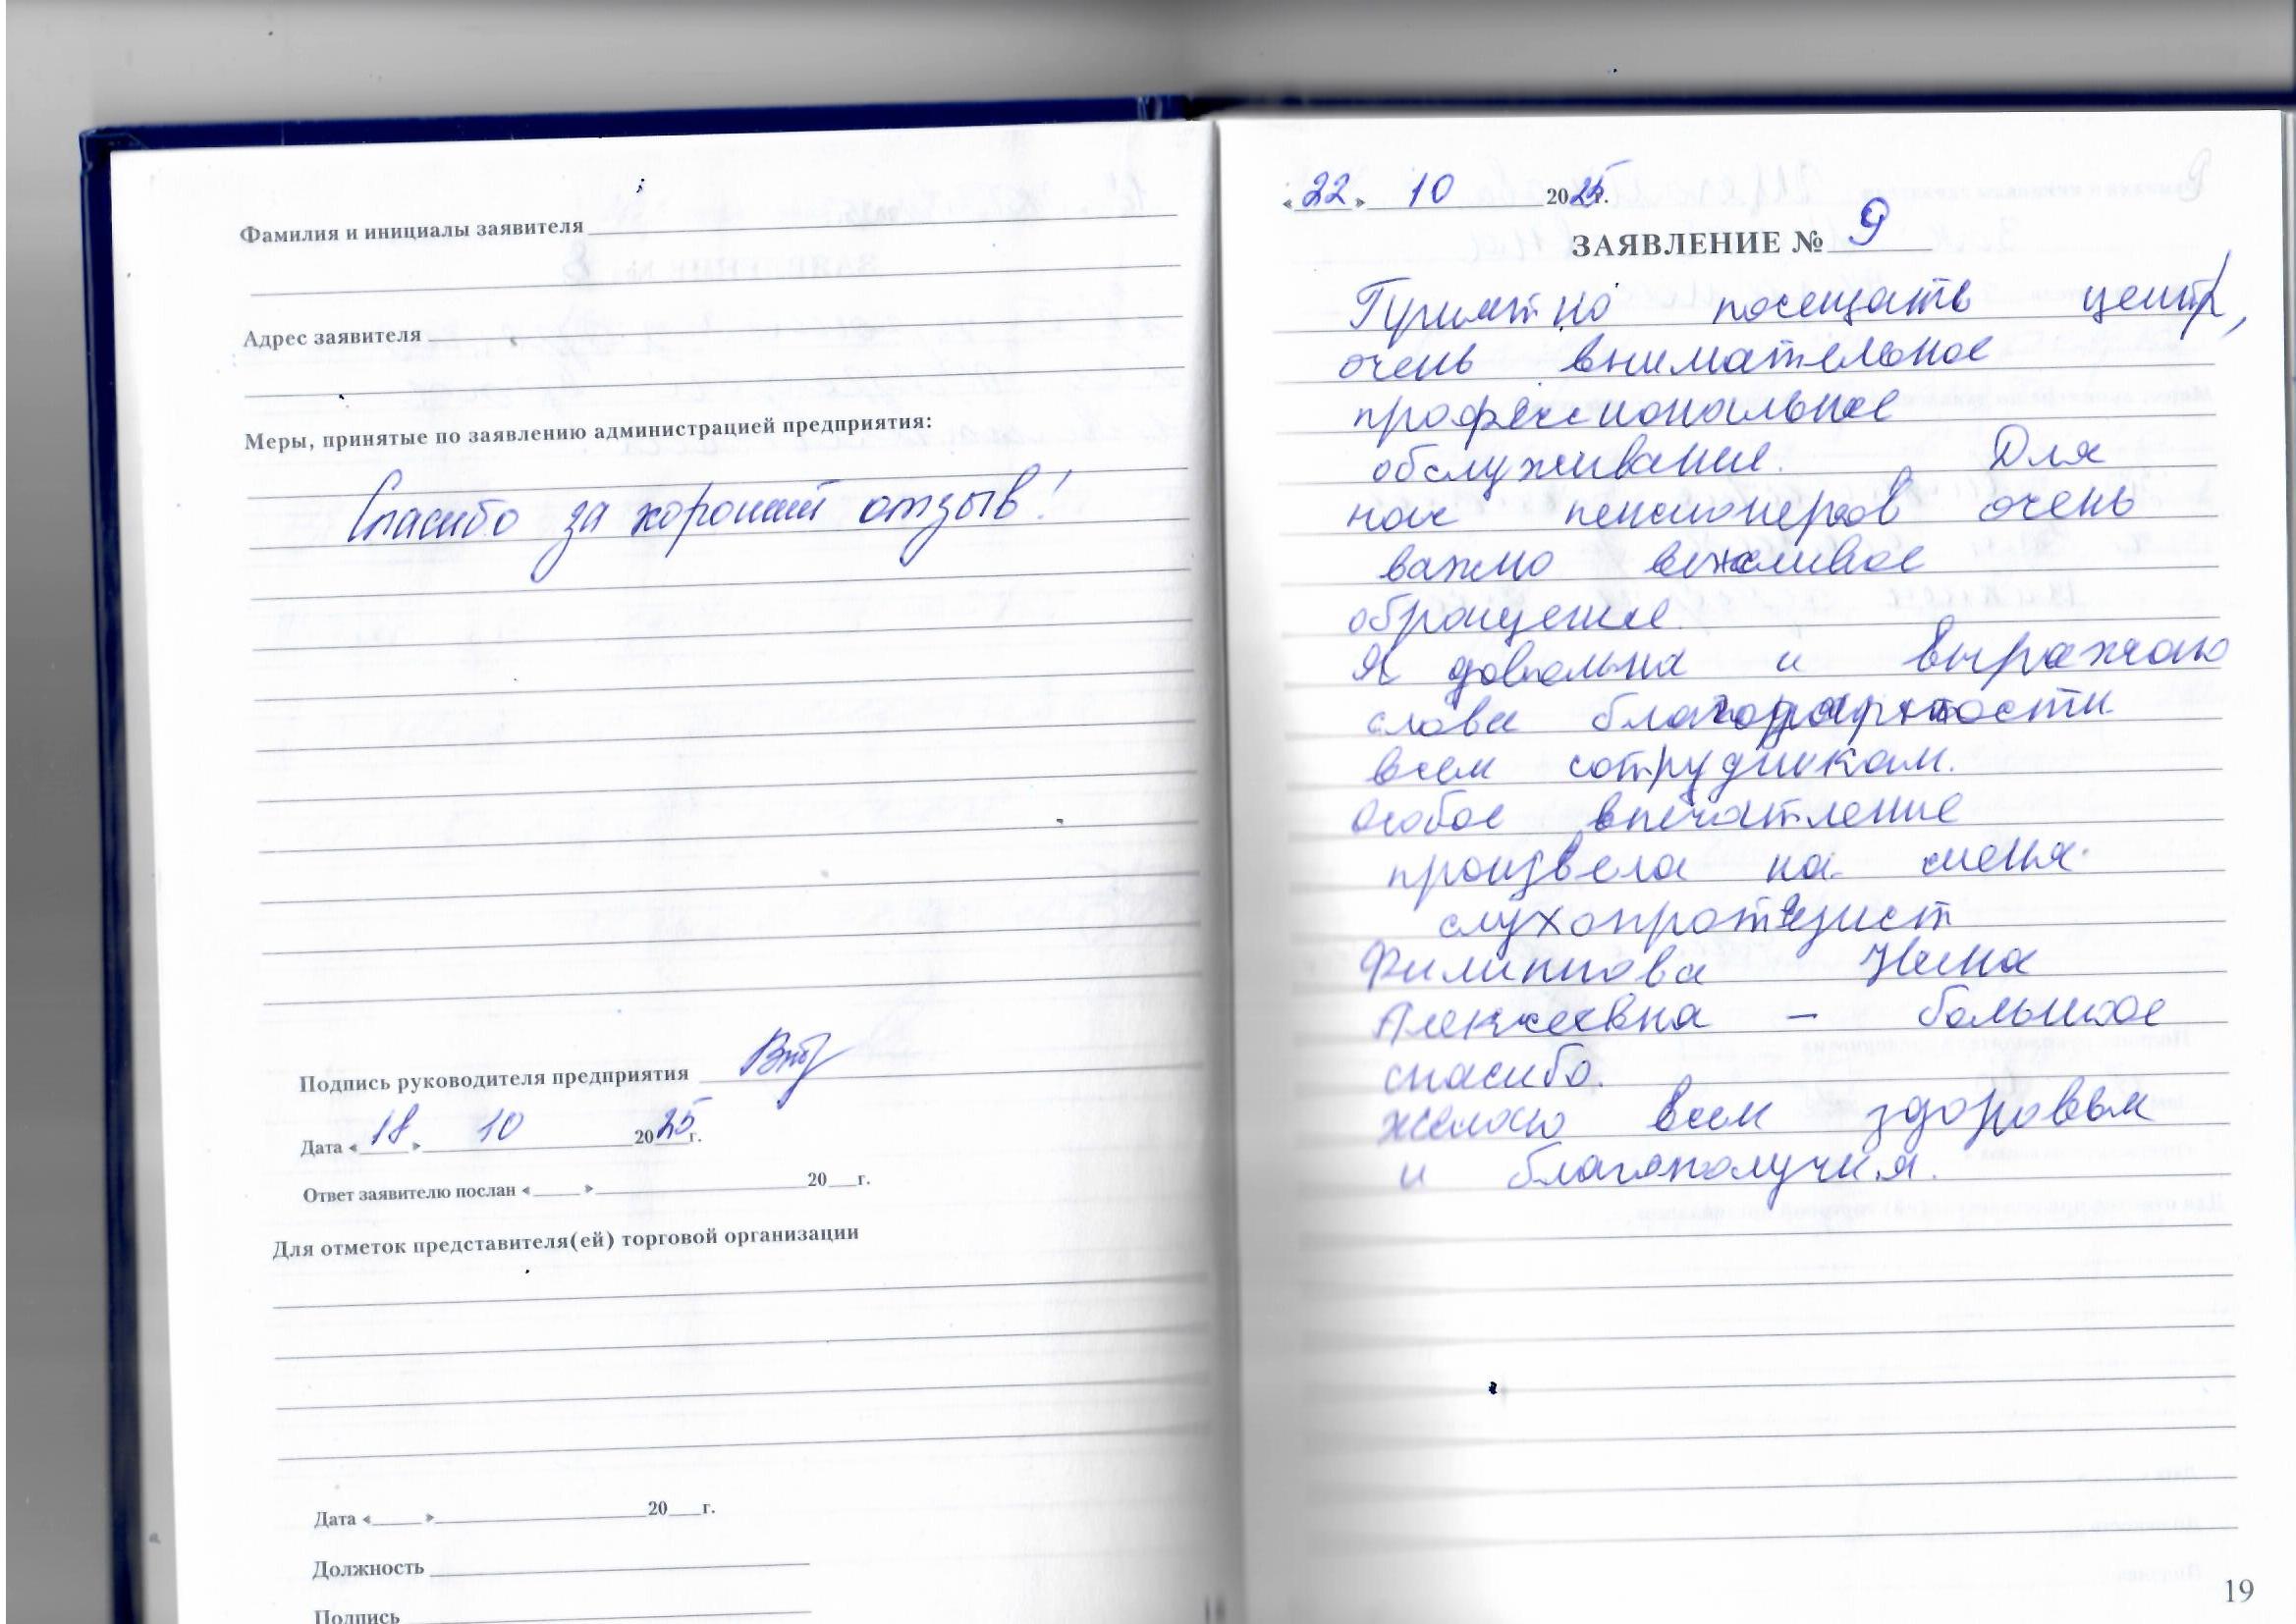 Фамилия и инициалы заявителя
Адрес заявителя
Меры, принятые по заявлению администрацией предприятия:
Спасибо за хороший отзыв!
Подпись руководителя предприятия
Дата «18» 10 2025 г.
Ответ заявителю послан «____» 20__г.
Для отметок представителя(ей) торговой организации
Дата «____» 20__г.
Должность
Подпись
«22» 10 2025г.
ЗАЯВЛЕНИЕ № 9
Приятно посещать центр,
очень внимательное
профессиональное
обслуживание. Для
нас пенсионеров очень
важно вежливое
обращение.
Я довольна и выражаю
слова благодарности
всем сотрудникам.
Особое впечатление
произвела на меня
слухопротезист
Филиппова Нина
Алексеевна – большое
спасибо.
Желаю всем здоровья
и благополучия.
19